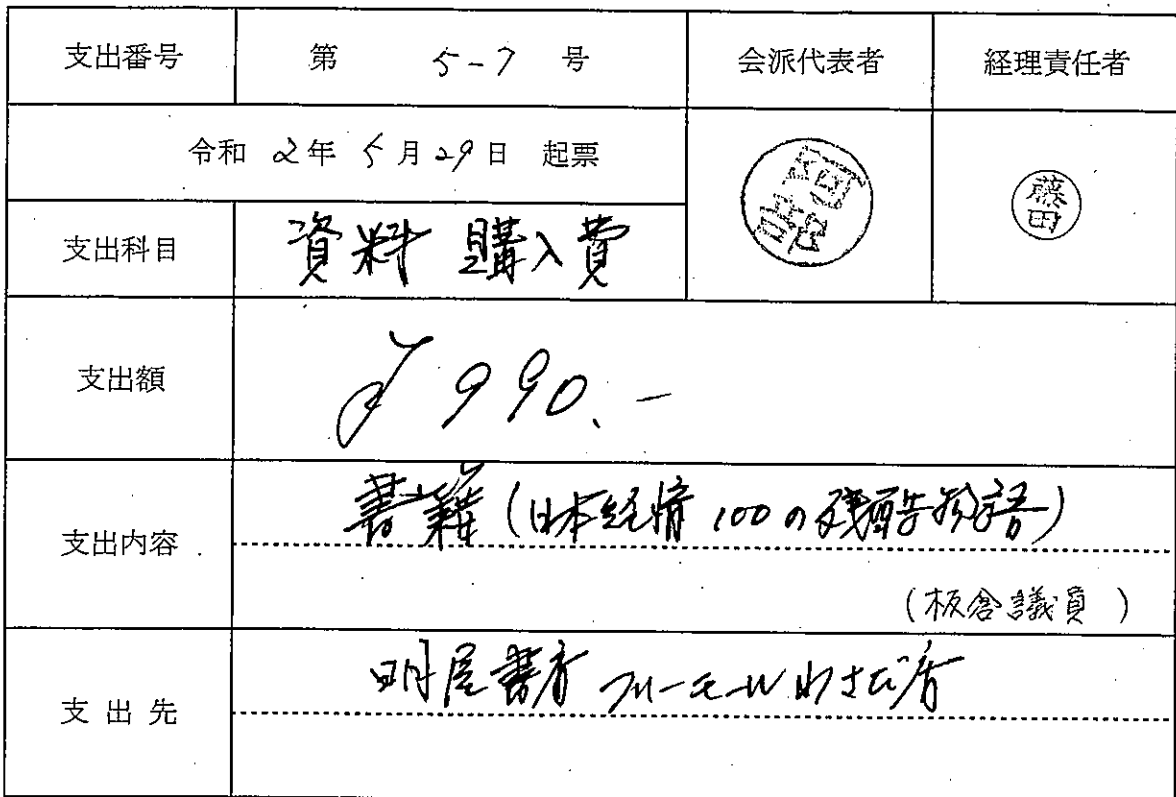 支出番号 第 5-7 号 会派代表者 経理責任者
令和 2年 5月29日 起票
阿部
藤田
支出科目 資料購入費
支出額 ¥990.-
支出内容 書籍(日本経情 100の残酷物語)
(板倉議員)
支出先 明屋書店 フリーモールわさだ店